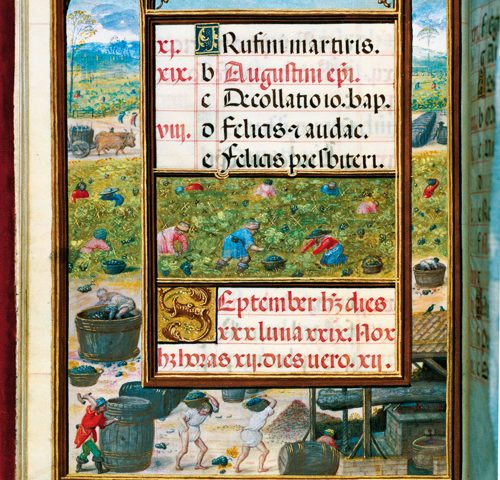 xj. A Rufini martiris.
xix. b Augustini ep̄i.
c Decollatio io. bap.
viij. d Felicis ⁊ audac.
e Felicis presbiteri.
September hȝ dies
xxx luna xxix. Nox
hȝ horas xij. dies uero. xij.